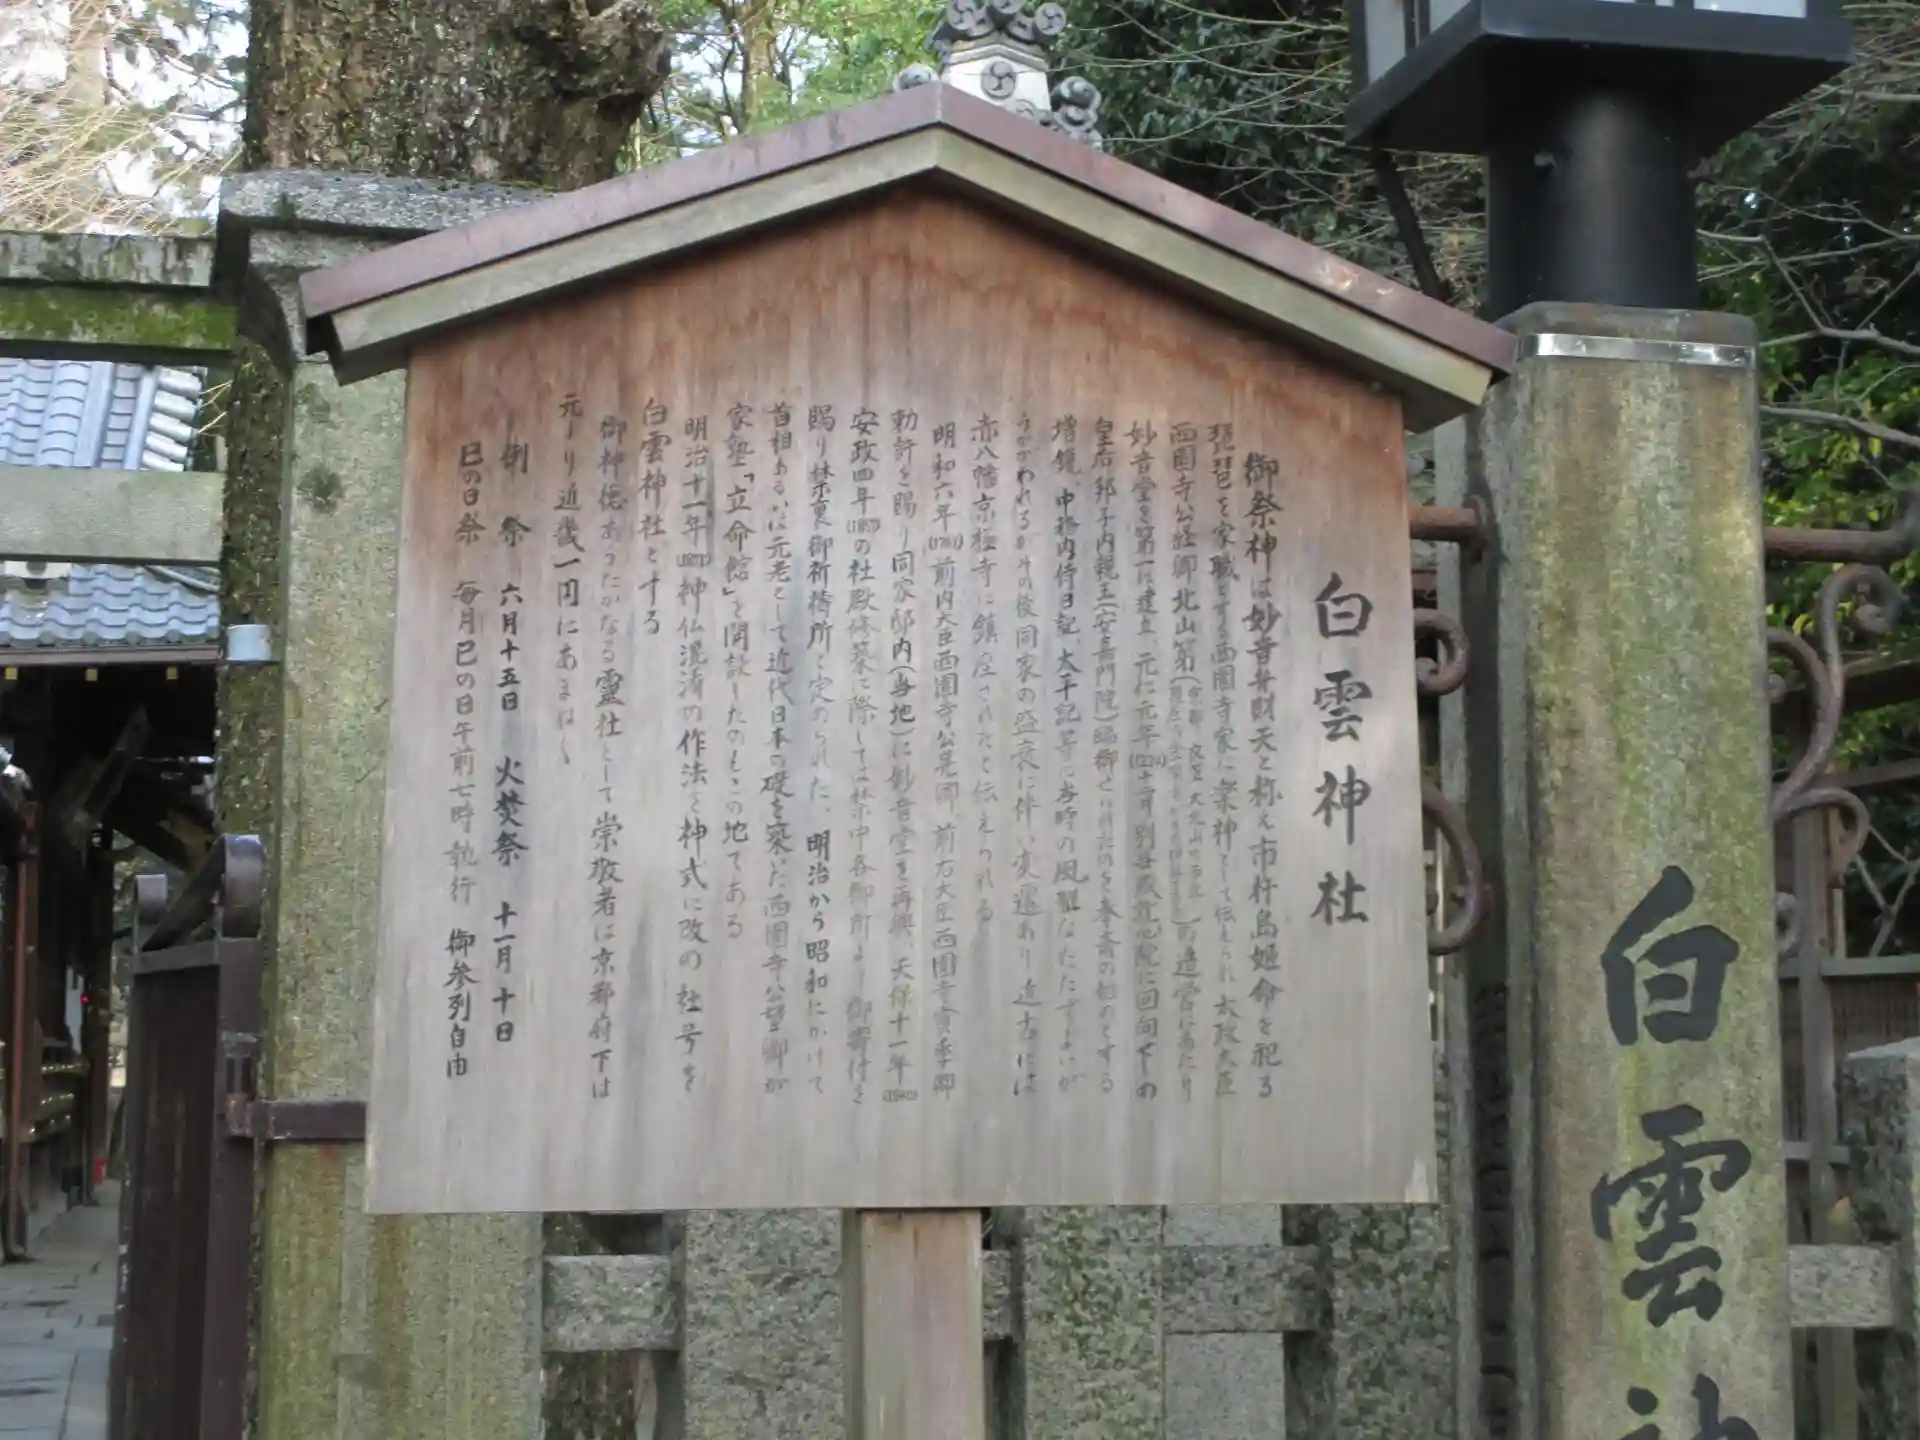 白雲神社
御祭神は妙音弁財天と称え市杵島姫命を祀る
琵琶を家職とする西園寺家に楽神として伝えられ 太政大臣
西園寺公経卿北山第の造営にあたり
妙音堂を第一に建立、元仁元年(1224)十二月別当 に回向 下の
皇后邦子内親王(安喜門院)臨御せられたのを の始めとする
増鏡、中務内侍日記、太平記等に当時の風雅なたたずまいが
うかがわれるがその後同家の盛衰に伴い変遷あり近古には
赤八幡京極寺に鎮座されたと伝えられる
明和六年(1769)前内大臣西園寺公晃卿、前右大臣西園寺賞季卿
勅許を賜り同家邸内(当地)に妙音堂を再興、天保十一年
安政四年(1857)の社殿修築に際しては禁中各御所より御寄付を
賜り禁裏御祈祷所と定められた、明治から昭和にかけて
首相あるいは元老として近代日本の礎を築いた西園寺公望卿が
家塾「立命館」を開設したのもこの地である
明治十一年(1878)神仏混淆の作法を神式に改め社号を
白雲神社とする
御神徳あらたかなる霊社として崇敬者は京都府下は
元より近畿一円にあまねく
例祭 六月十五日 火焚祭 十一月十日
巳の日祭 毎月巳の日午前七時執行 御参列自由
白雲神